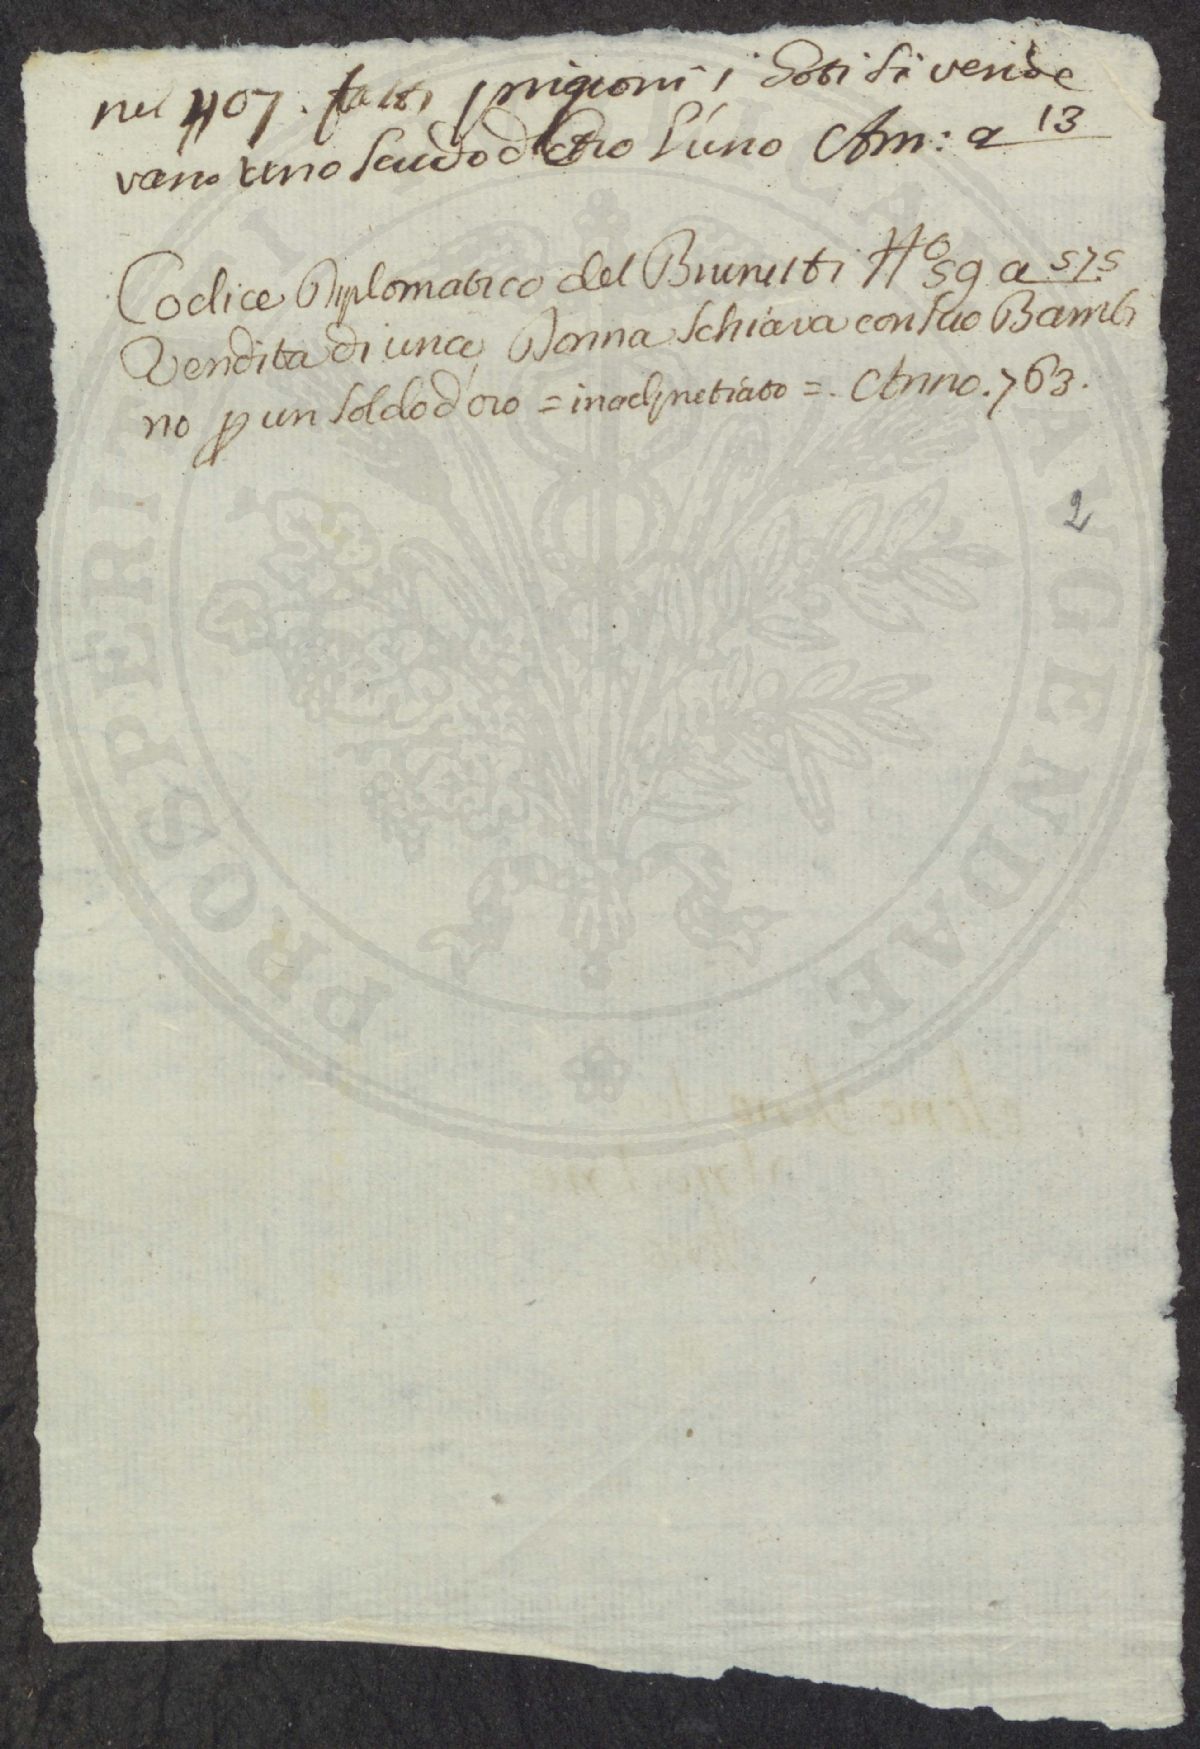 nel 407. fatti prigioni i Goti si vende
vano uno scudo d'Oro l'uno Am: a 13
Codice Diplomatico del Brunetti N.o 59 a 575
Vendita di una Donna Schiava con suo Bambi
no p un soldo d'oro = inadpretiato =. Anno. 763.
2
PROSPERITATI PUBLICAE AUGENDAE